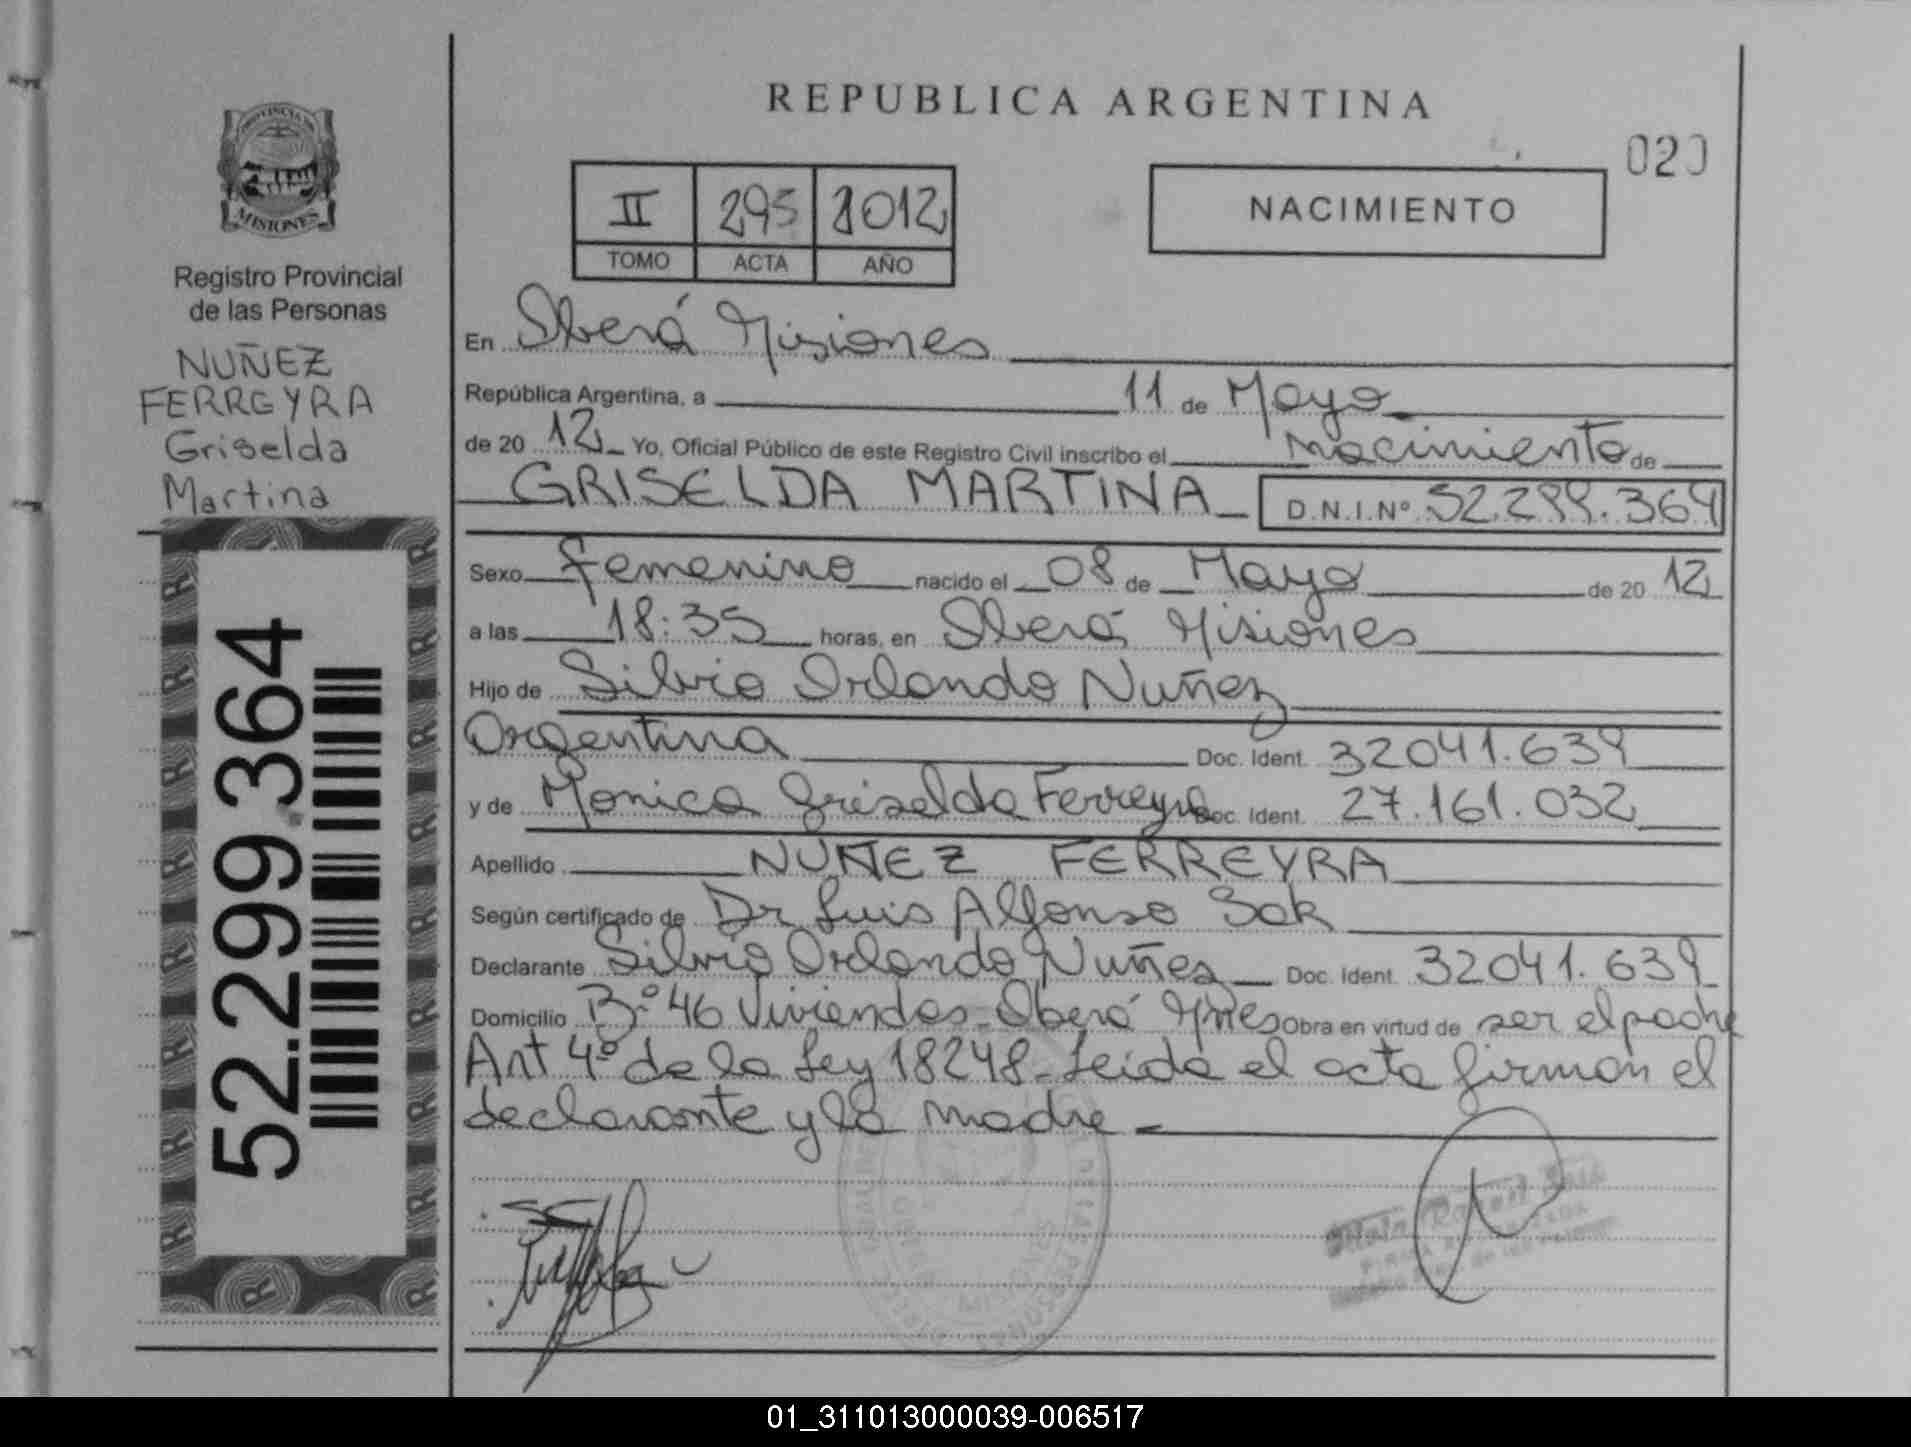 REPUBLICA ARGENTINA
020
PROVINCIA DE
MISIONES
Registro Provincial
de las Personas
NUÑEZ
FERREYRA
Griselda
Martina
52.299.364
II 295 2012
TOMO ACTA AÑO
NACIMIENTO
En Oberá Misiones
República Argentina, a 11 de Mayo
de 20 12 Yo, Oficial Público de este Registro Civil inscribo el Nacimiento de
GRISELDA MARTINA D.N.I.Nº 52.299.364
Sexo Femenino nacido el 08 de Mayo de 20 12
a las 18:35 horas, en Oberá Misiones
Hijo de Silvio Orlando Nuñez
Argentina Doc. Ident. 32041.639
y de Monica Griselda Ferreyra Doc. Ident. 27.161.032
Apellido NUÑEZ FERREYRA
Según certificado de Dr Luis Alfonso Sok
Declarante Silvio Orlando Nuñez Doc. Ident. 32041.639
Domicilio Bº 46 Viviendas - Oberá Mnes Obra en virtud de ser el padre
Art 4º de la Ley 18248 - Leida el acta firman el
declarante y la madre -
01_311013000039-006517